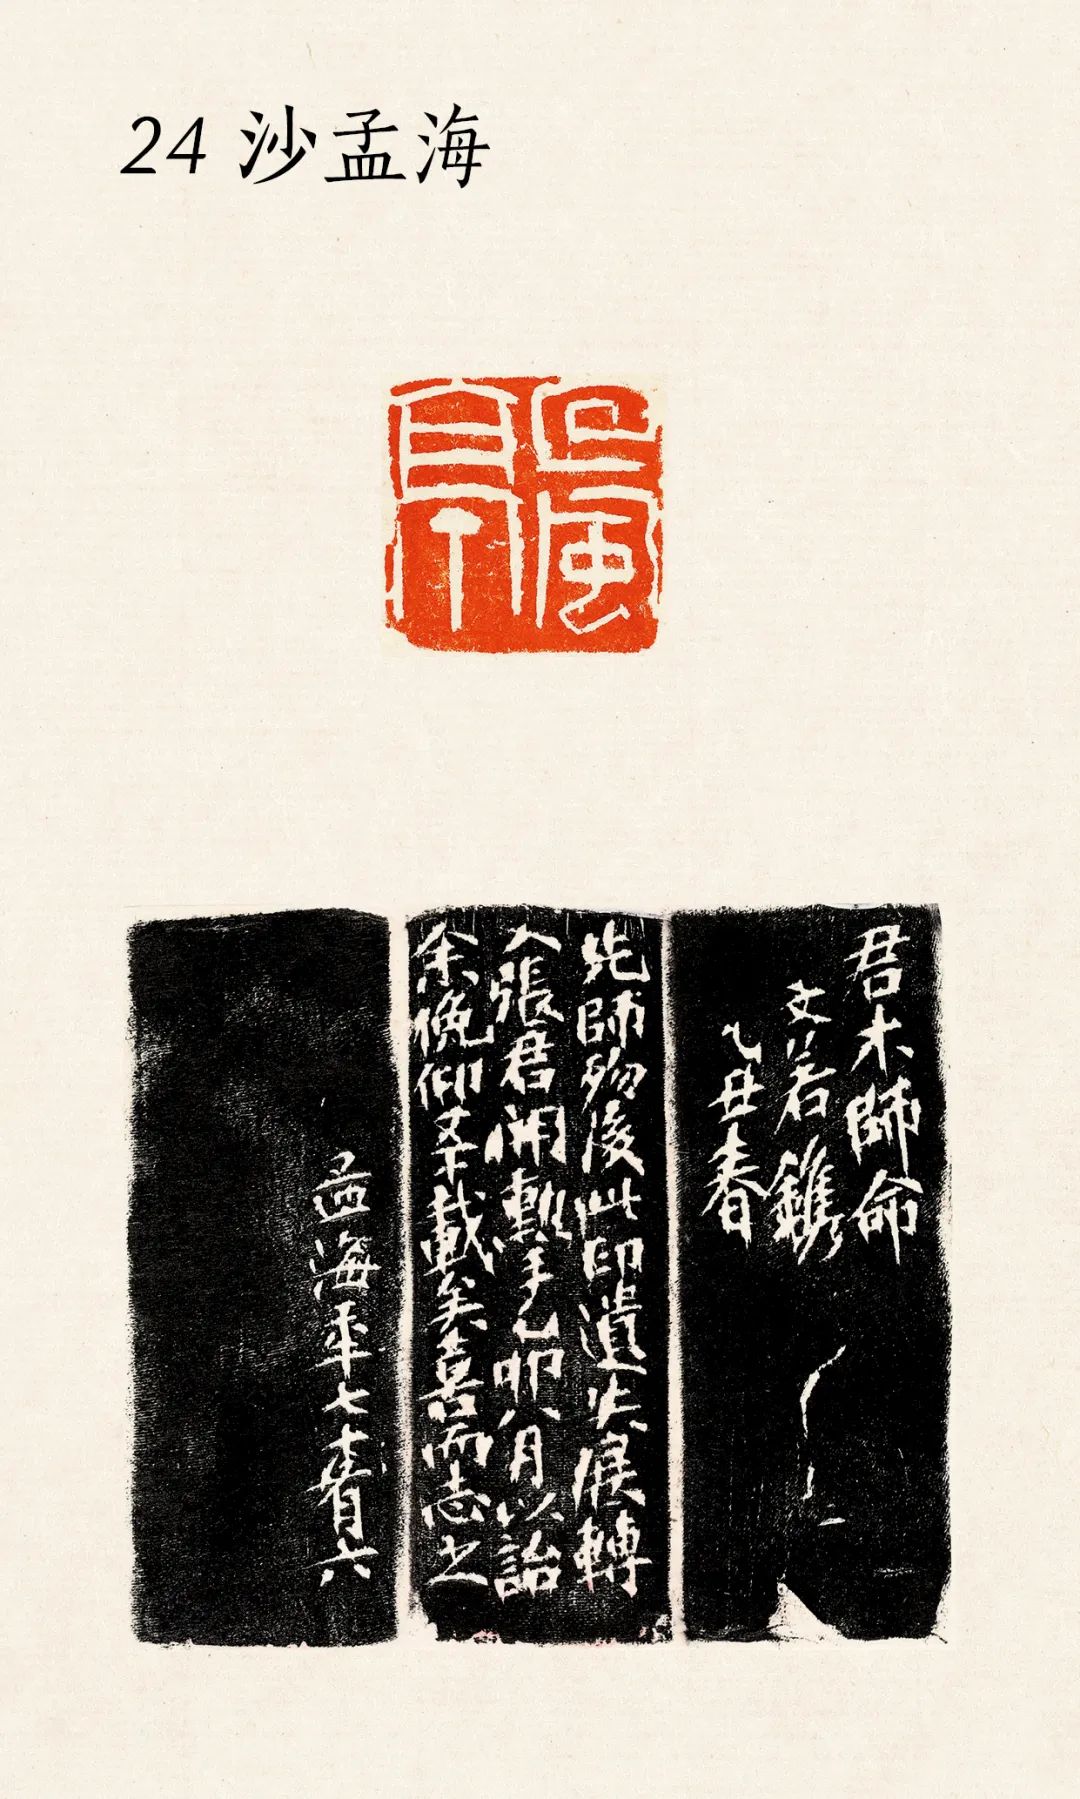 24 沙孟海
回風亭
君木師命
文若鐫
乙丑春
先師歾後此印遺失展轉
入張君開勳手乙卯八月以詒
余俛仰五十載矣喜而志之
孟海年七十有六